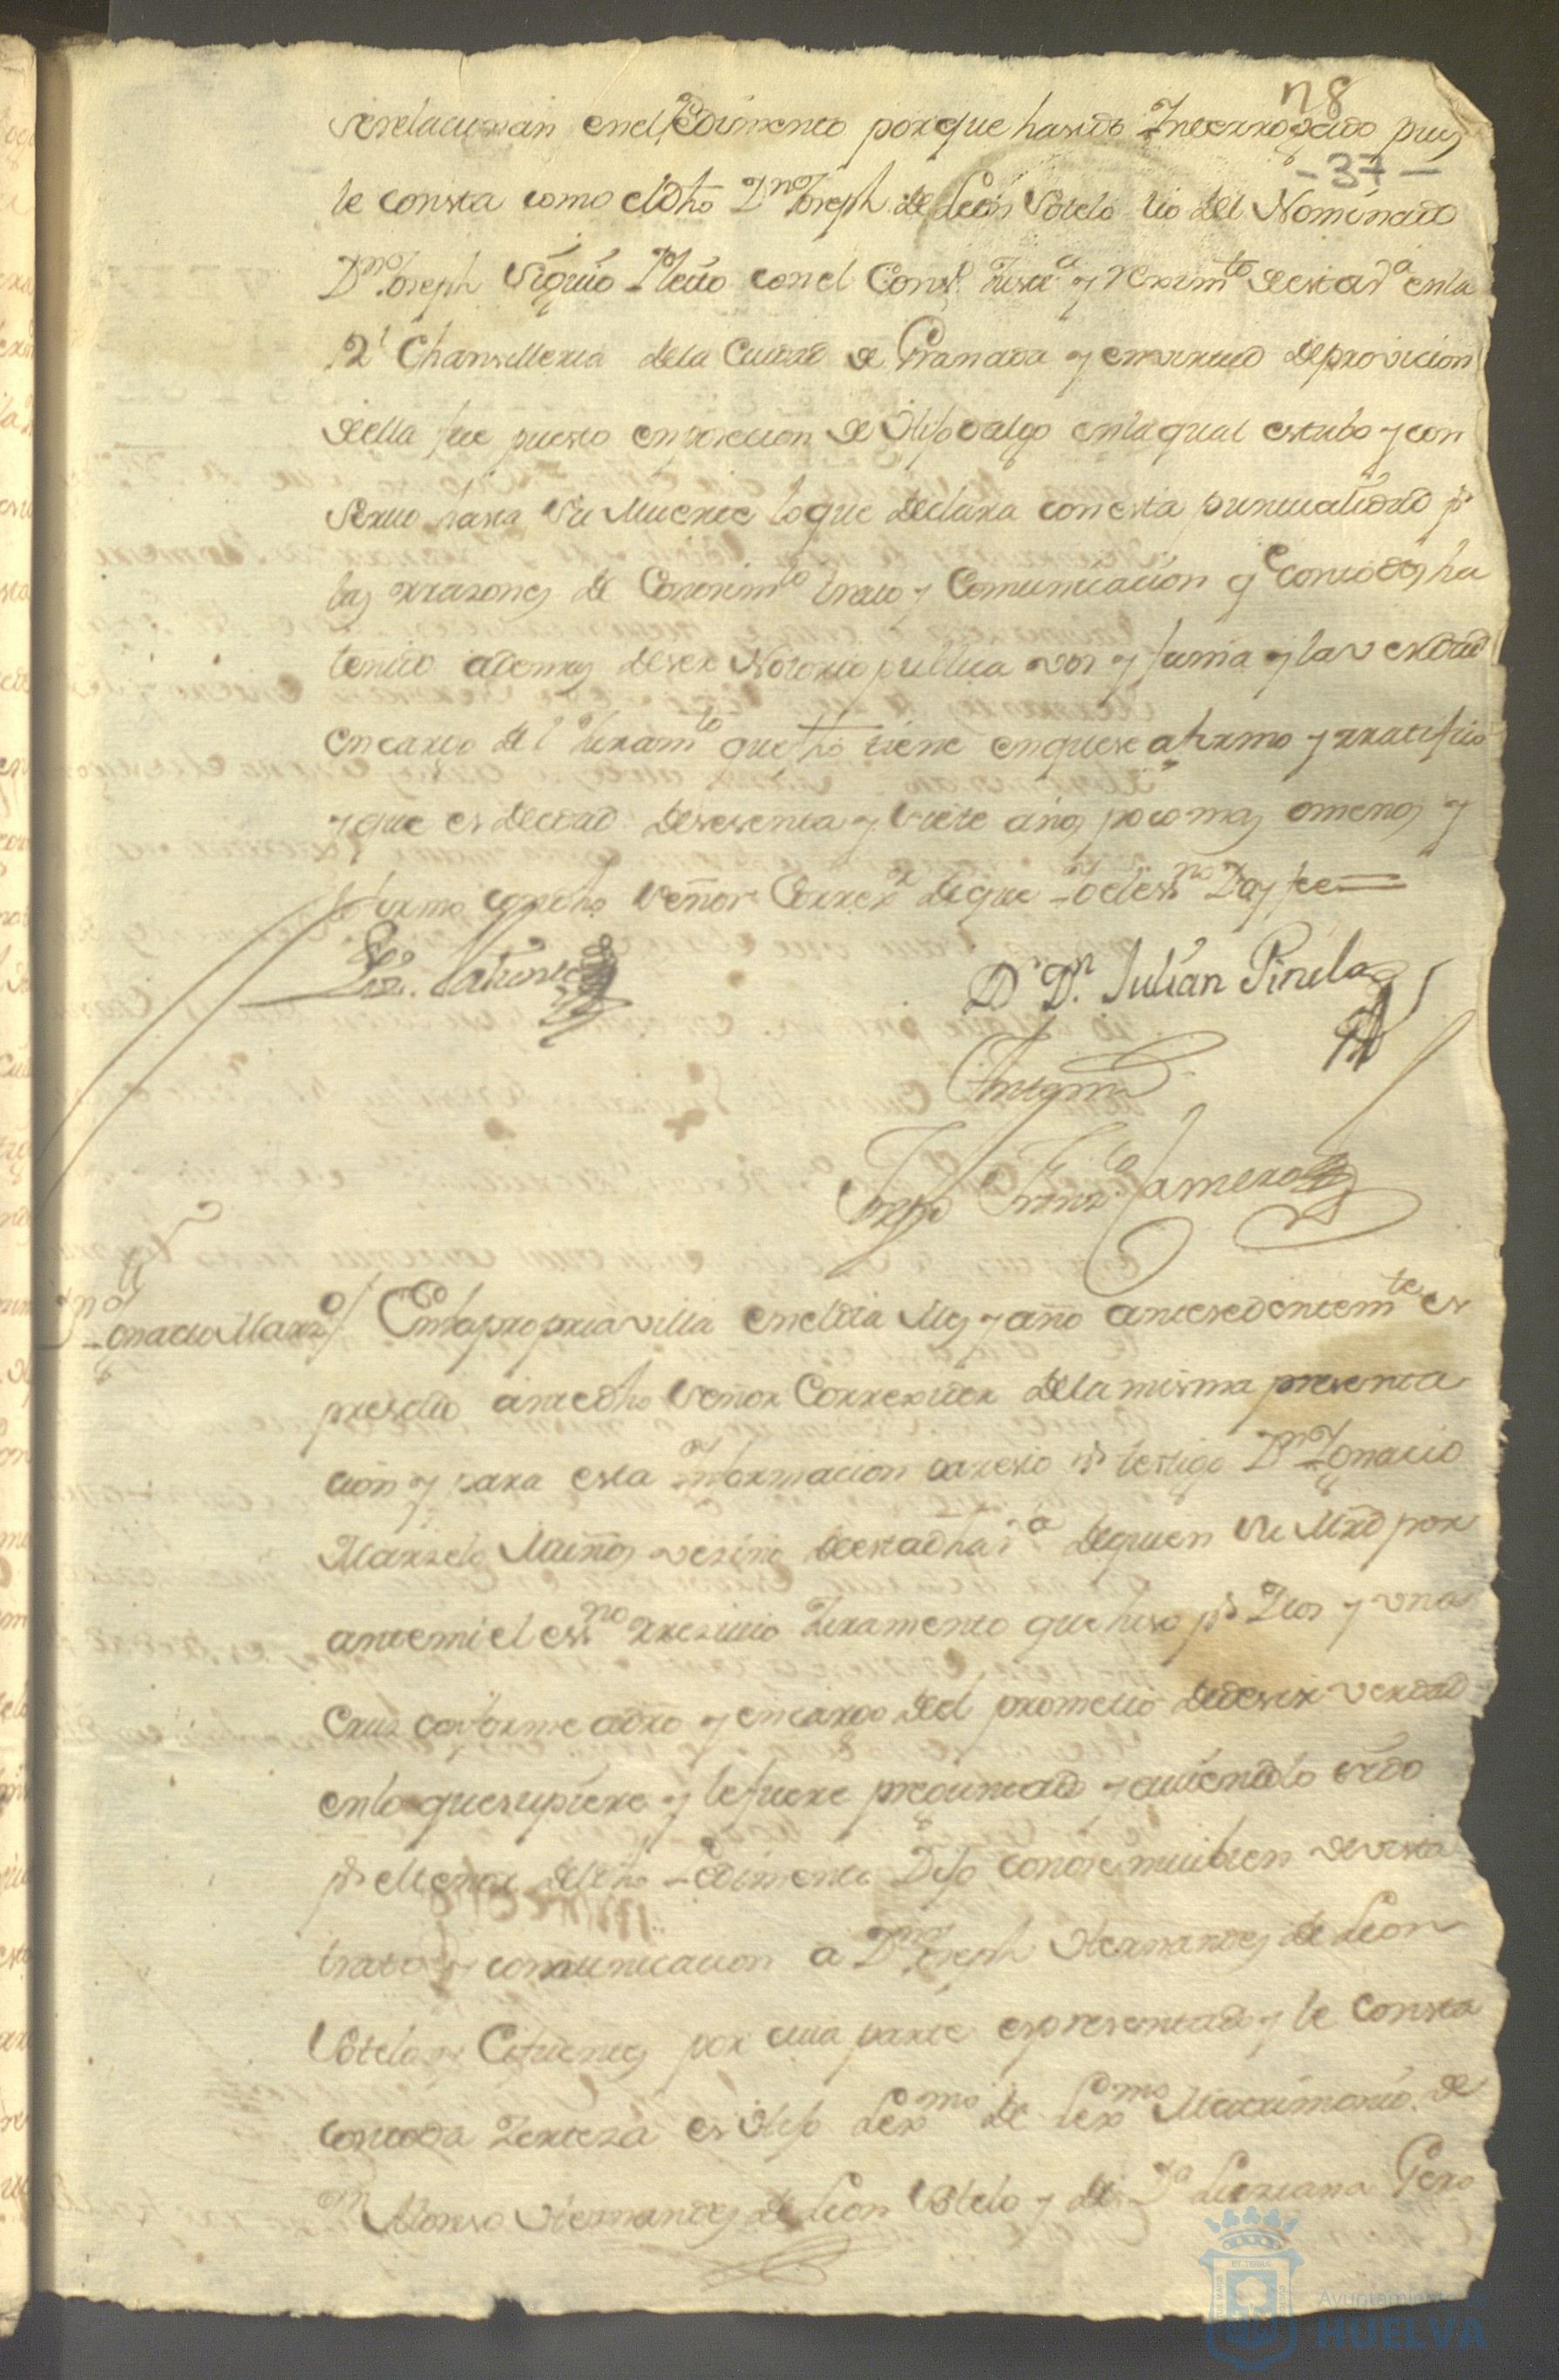 n8
serelacionan enel Pedimento porque hasido Interrogado pues
-37-
le consta como el dho Dn Joseph de Leon Sotelo tio del Nominado
Dn Joseph siguio Pleito con el Consº Justª y Reximto de esta Vª enla
Rl Chansilleria dela Ciudad de Granada y envirtud de provicion
de ella fue puesto en posecion de Hijo dalgo enla qual estubo y con
servo hasta su Muerte lo que declara con esta puntualidad pr
las rrazones de Conosimto trato y Comunicacion qe con todos ha
tenido ademas de ser Notorio publica vos y fama y la verdad
en cargo del Juramto que fho tiene en que se afirmo y rratifico
y que es de edad de sesenta y siete años poco mas omenos y
lo firmo con dho Señor Correxor de que Yo el essno Doy fee=
Dr Dn Julian Pinela
Ante mi
Joseph Franco Camero
tº
Dn Ignacio Marzo
En la propria villa en el dia Mes y año antesedentemte es
presado ante dho Señor Correxidor de la misma presenta
cion y para esta Informacion paresio pr testigo Dn Ignacio
Marzelo Muños vezino de esta dha vª de quien su Mrd por
ante mi el essno rrezivio Juramento que hiso pr Dios y una
Cruz conforme a dro y en cargo del prometio de desir verdad
en lo que supiere y le fuere preguntado y aviendolo sido
pr el tenor del dho Pedimento Dijo conose mui bien de vista
trato y comunicacion a Dn Joseph Hernandes de Leon
Sotelo y Cifuentes por cuia parte es presentado y le Consta
con toda Zerteza es Hijo Lexmo de Lexmo Matrimonio de
Dn Alonso Hernandes de Leon Sotelo y de Da Luziana Gero
Ayuntamiento de
HUELVA